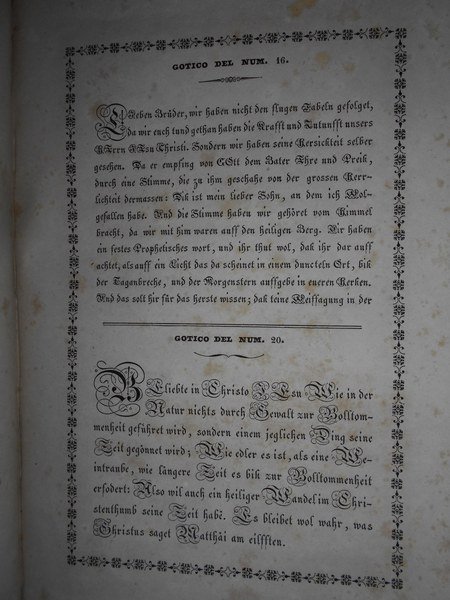 GOTICO DEL NUM. 16.
Lieben Brüder, wir haben nicht den flugen Fabeln gefolget,
da wir euch fund gethan haben die Krafft und Zukunfft unsers
HErrn JEsu Christi. Sondern wir haben seine Herlichkeit selber
gesehen. Da er empfing von GOtt dem Vater Ehre und Preiß,
durch eine Stimme, die zu ihm geschahe von der grossen Herr-
lichkeit dermassen: Diß ist mein lieber Sohn, an dem ich Wol-
gefallen habe. Und die Stimme haben wir gehöret vom Himmel
bracht, da wir mit ihm waren auff den heiligen Berg. Wir haben
ein festes Prophetisches wort, und ihr thut wol, daß ihr dar auff
achtet, als auff ein Licht das da scheinet in einem duncteln Ort, biß
der Taganbreche, und der Morgenstern auffgebe in eueren Herken.
Und das solt ihr für das herste wissen; daß keine Weissagung in der
GOTICO DEL NUM. 20.
Geliebte in Christo JEsu Wie in der
Natur nichts durch Gewalt zur Volltom-
menheit geführet wird, sondern einem jeglichen Ding seine
Zeit gegönnet wird; Wie edler es ist, als eine We-
intraube, wie längere Zeit es biß zur Volltommenheit
erfodert: Also wil auch ein heiliger Wandel im Chri-
stenthumb seine Zeit habē. Es bleibet wol wahr, was
Christus saget Matthäi am eilfften.